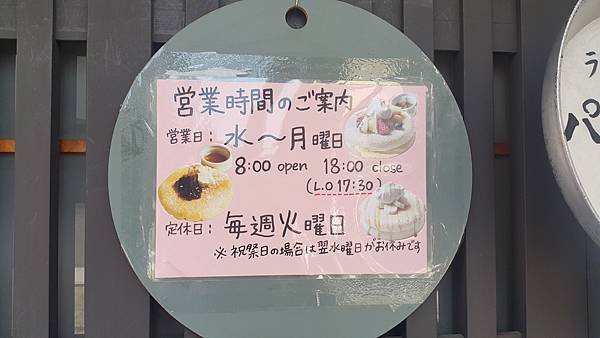 営業時間のご案内
営業日: 水〜月曜日
8:00 open 18:00 close
(L.O 17:30)
定休日: 毎週火曜日
※祝祭日の場合は翌水曜日がお休みです
ラ
パ